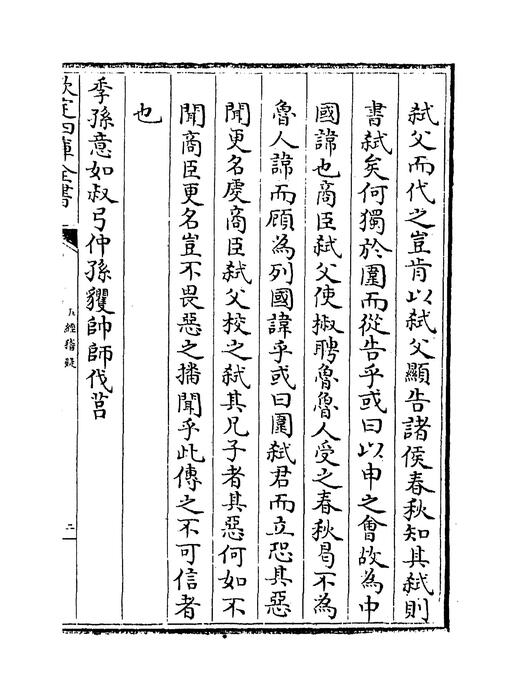 弑父而代之豈肯以弑父顯告諸侯春秋知其弑則
書弑矣何獨於圍而從告乎或曰以申之會故為中
國諱也商臣弑父使椒聘魯魯人受之春秋曷不為
魯人諱而顧為列國諱乎或曰圍弑君而立恐其惡
聞更名虔商臣弑父校之弑其兄子者其惡何如不
聞商臣更名豈不畏惡之播聞乎此傳之不可信者
也
季孫意如叔弓仲孫貜帥師伐莒
欽定四庫全書
經稽疑
二